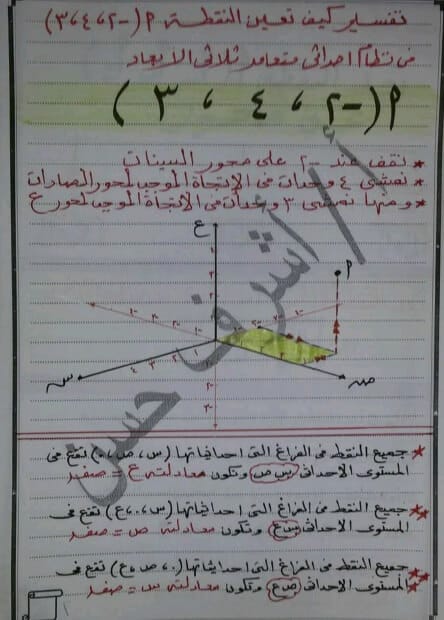 تفسير كيف تعين النقطة م (-٢، ٤، ٣)
فى نظام إحداثى متعامد ثلاثى الأبعاد
م (-٢ ، ٤ ، ٣)
* نقف عند -٢ على محور السينات
* نمشى ٤ وحدات فى الإتجاة الموجب لمحور الصادات
* ومنها نمشى ٣ وحدات فى الإتجاة الموجب لمحور ع
ع
م
س
صہ
أ/ أشرف حسن
* جميع النقط فى الفراغ التى احداثياتها (س، ص، ٠) تقع فى
المستوى الاحداثى س ص وتكون معادلته ع = صفر
* جميع النقط فى الفراغ التى احداثياتها (س، ٠، ع) تقع فى
المستوى الاحداثى س ع وتكون معادلته ص = صفر
* جميع النقط فى الفراغ التى احداثياتها (٠، ص، ع) تقع فى
* المستوى الاحداثى ص ع وتكون معادلته س = صفر